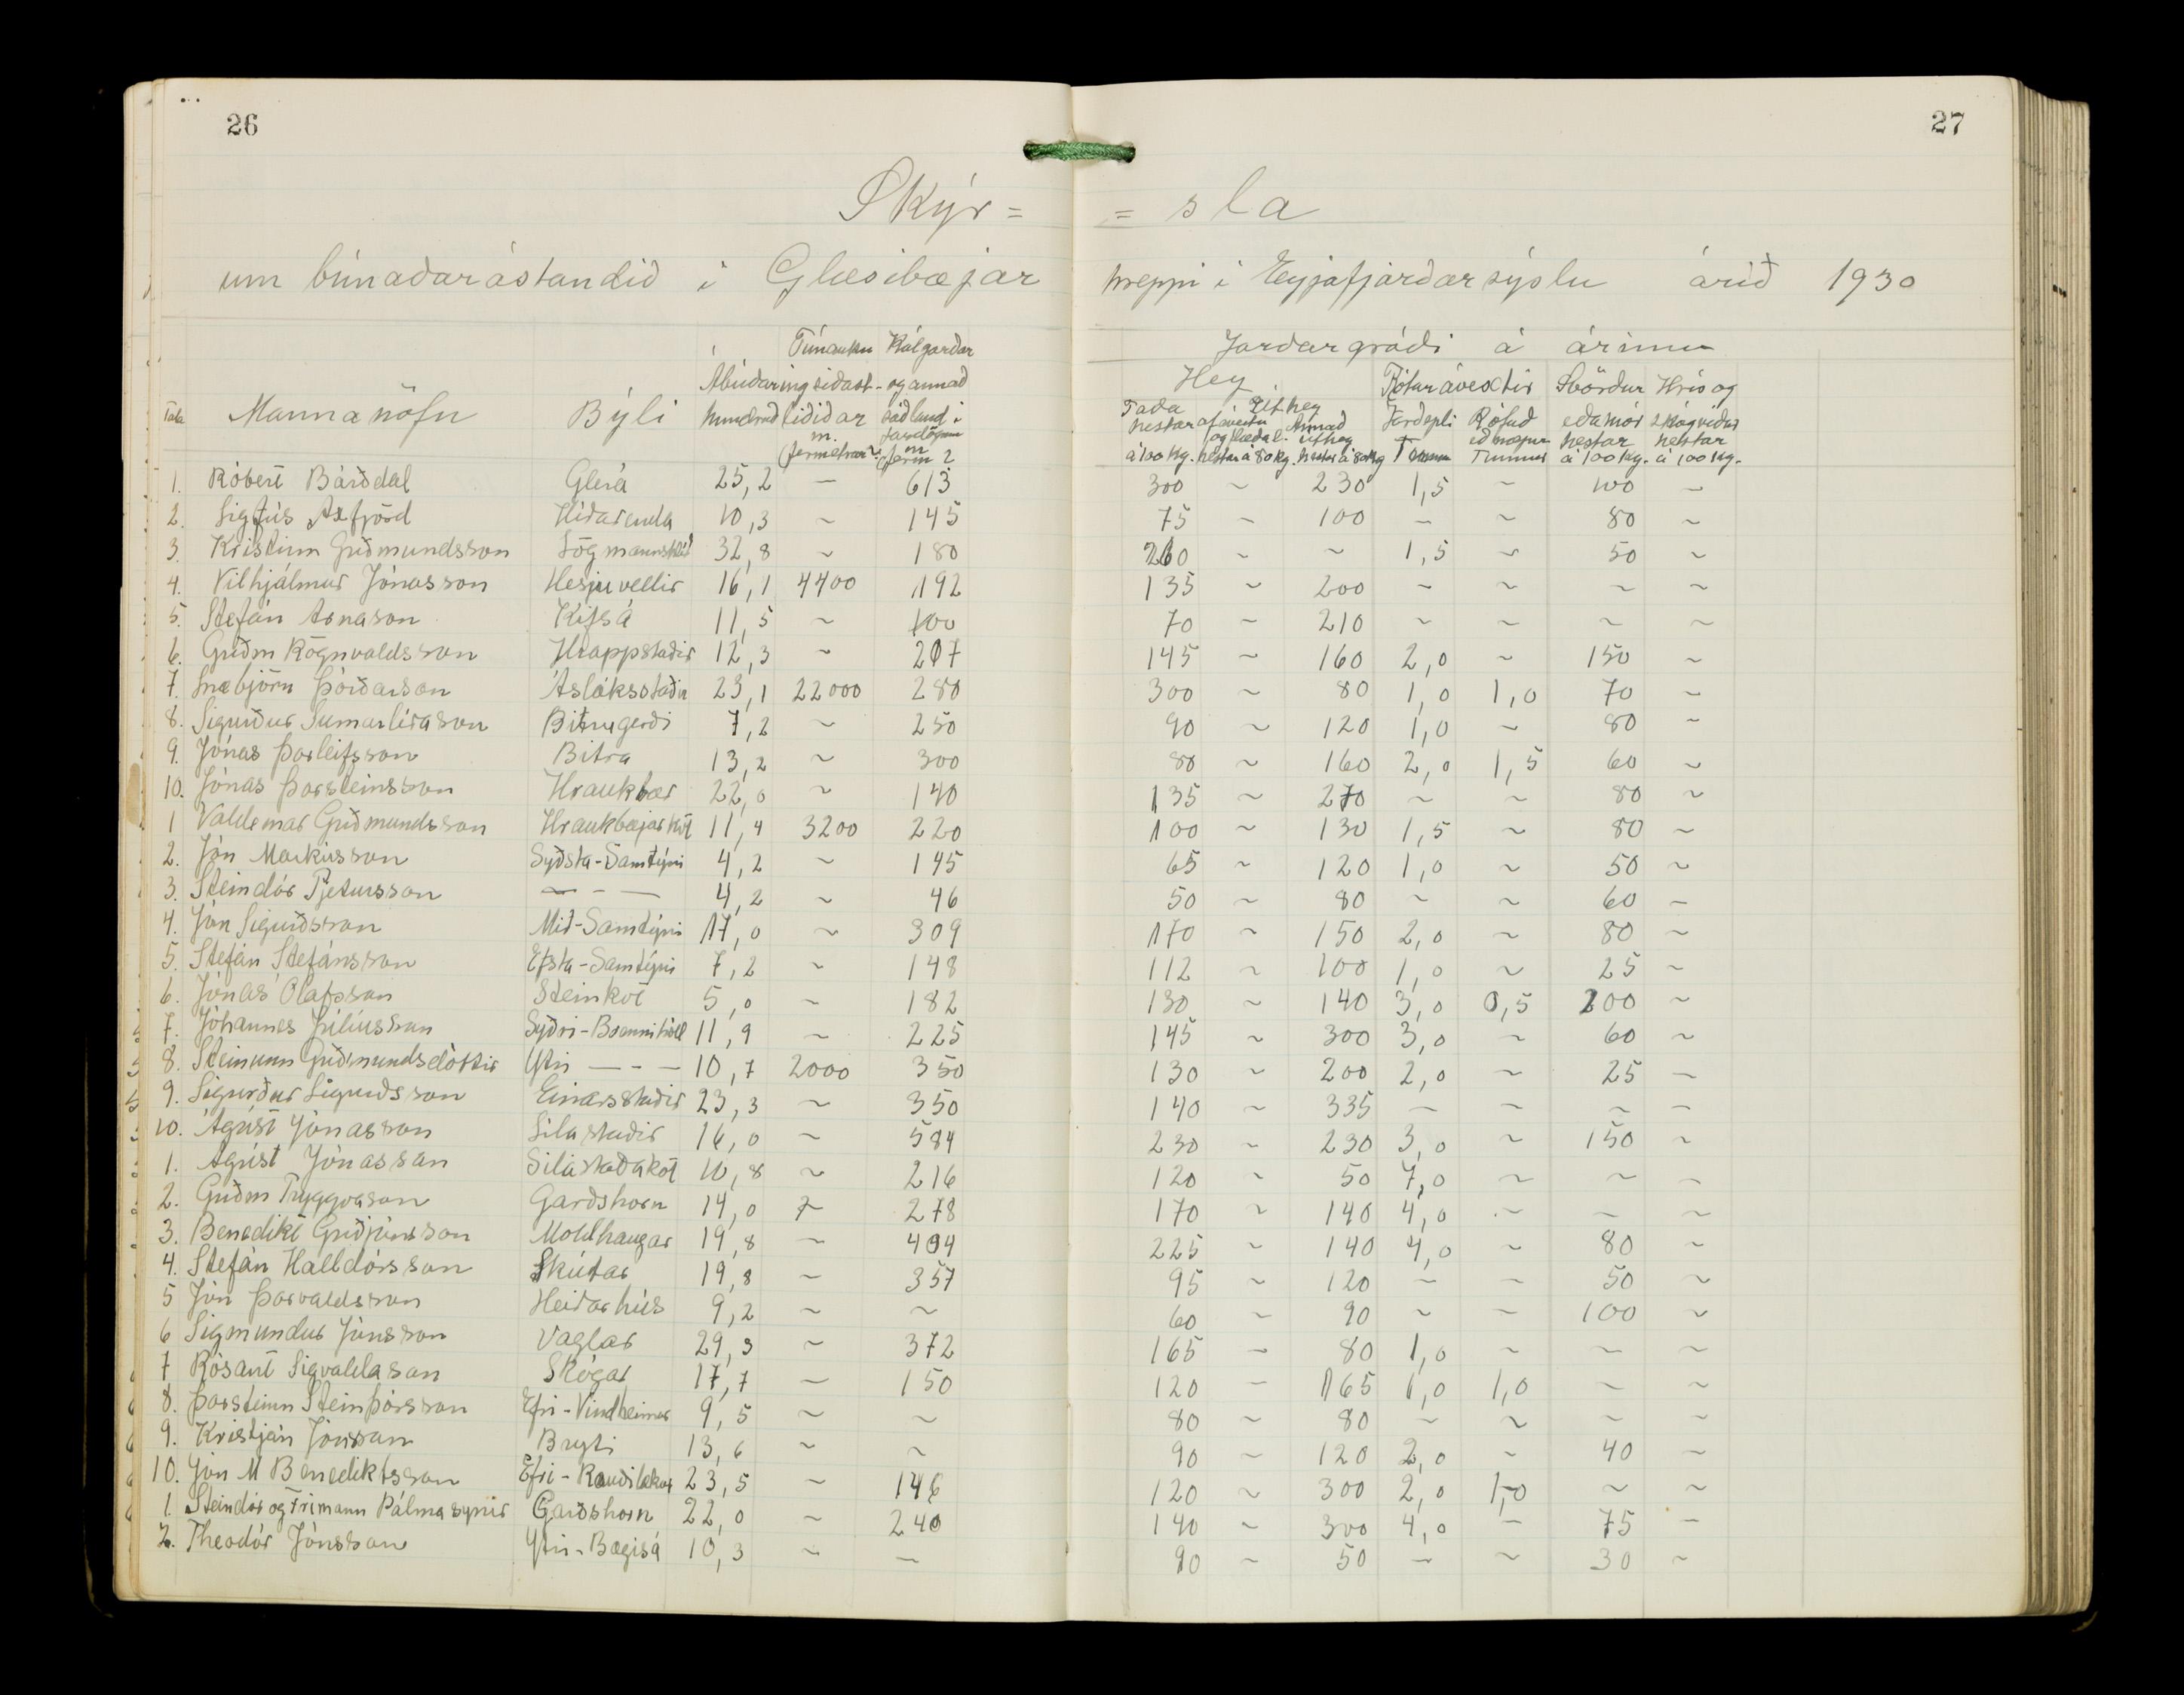 26
27
Skýr= =sla
um búnaðarástandið í Glæsibæjar hreppi í Eyjafjarðarsýslu árið 1930
Tala Manna nöfn Býli Ábúðar hundruð Túnauku ing síðast- liðið ár m. (fermetrar)² Kálgarðar og annað sáðland í fardögum m (ferm 2
Jarðargróði á árinu
Hey Rótarávextir Svörður Hrís og
Taða hestar á 100 kg. Úthey af áveitu og flæðal. hestar á 80 kg. Annað úthey hestar á 80 kg Jarðepli Tunnur Rófur og næpur Tunnur eða mór hestar á 100 kg. skógviður hestar á 100 kg.
1. Róbert Bárðdal Glerá 25,2 — 613 300 ~ 230 1,5 ~ 100 ~
2. Sigfús Axfjörd Hlíðarenda 10,3 ~ 145 75 ~ 100 ~ ~ 80 ~
3. Kristinn Guðmundsson Lögmannshlíð 32,8 ~ 180 260 ~ ~ 1,5 ~ 50 ~
4. Vilhjálmur Jónasson Hesjuvellir 16,1 4400 192 135 ~ 200 ~ ~ ~ ~
5. Stefán Árnason Kífsá 11,5 ~ 100 70 ~ 210 ~ ~ ~ ~
6. Guðm Rögnvaldsson Hrappstaðir 12,3 ~ 207 145 ~ 160 2,0 ~ 150 ~
7. Snæbjörn Þórðarson Ásláksstaðir 23,1 22000 280 300 ~ 80 1,0 1,0 70 ~
8. Sigurður Sumarliðason Bitrugerði 7,2 ~ 250 90 ~ 120 1,0 ~ 80 ~
9. Jónas Þorleifsson Bitra 13,2 ~ 300 80 ~ 160 2,0 1,5 60 ~
10. Jónas Þorsteinsson Hraukbær 22,0 ~ 140 135 ~ 270 ~ ~ 80 ~
1 Valdemar Guðmundsson Hraukbæjarkot 11,4 3200 220 100 ~ 130 1,5 ~ 80 ~
2. Jón Markússon Syðsta-Samtýni 4,2 ~ 145 65 ~ 120 1,0 ~ 50 ~
3. Steindór Pjetursson — - — 4,2 ~ 46 50 ~ 80 ~ ~ 60 ~
4. Jón Sigurðsson Mið-Samtýni 17,0 ~ 309 170 ~ 150 2,0 ~ 80 ~
5. Stefán Stefánsson Efsta-Samtýni 7,2 ~ 148 112 ~ 100 1,0 ~ 25 ~
6. Jónas Ólafsson Steinkot 5,0 ~ 182 130 ~ 140 3,0 0,5 200 ~
7. Jóhannes Júlíusson Syðri-Brennihóll 11,9 ~ 225 145 ~ 300 3,0 ~ 60 ~
8. Steinunn Guðmundsdóttir Ytri — - — 10,7 2000 350 130 ~ 200 2,0 ~ 25 ~
9. Sigurður Sigurðsson Einarsstaðir 23,3 ~ 350 140 ~ 335 ~ ~ ~ ~
10. Ágúst Jónasson Sílastaðir 16,0 ~ 584 230 ~ 230 3,0 ~ 150 ~
1. Ágúst Jónasson Sílastaðakot 10,8 ~ 216 120 ~ 50 7,0 ~ ~ ~
2. Guðm Tryggvason Garðshorn 14,0 ~ 278 170 ~ 140 4,0 ~ ~ ~
3. Benedikt Guðjónsson Moldhaugar 19,8 ~ 404 225 ~ 140 4,0 ~ 80 ~
4. Stefán Halldórsson Skútar 19,8 ~ 357 95 ~ 120 ~ ~ 50 ~
5 Jón Þorvaldsson Heiðarhús 9,2 ~ ~ 60 ~ 90 ~ ~ 100 ~
6 Sigmundur Jónsson Vaglar 29,3 ~ 372 165 ~ 80 1,0 ~ ~ ~
7 Rósant Sigvaldason Skógar 17,7 ~ 150 120 ~ 165 1,0 1,0 ~ ~
8. Þorsteinn Steinþórsson Efri-Vindheimar 9,5 ~ ~ 80 ~ 80 ~ ~ ~ ~
9. Kristján Jónsson Bryti 13,6 ~ ~ 90 ~ 120 2,0 ~ 40 ~
10. Jón M Benediktsson Efri-Rauðilækur 23,5 ~ 146 120 ~ 300 2,0 1,0 ~ ~
1. Steindór og Frímann Pálmasynir Garðshorn 22,0 ~ 240 140 ~ 300 4,0 ~ 75 ~
2. Theodór Jónsson Ytri-Bægisá 10,3 ~ ~ 90 ~ 50 ~ ~ 30 ~